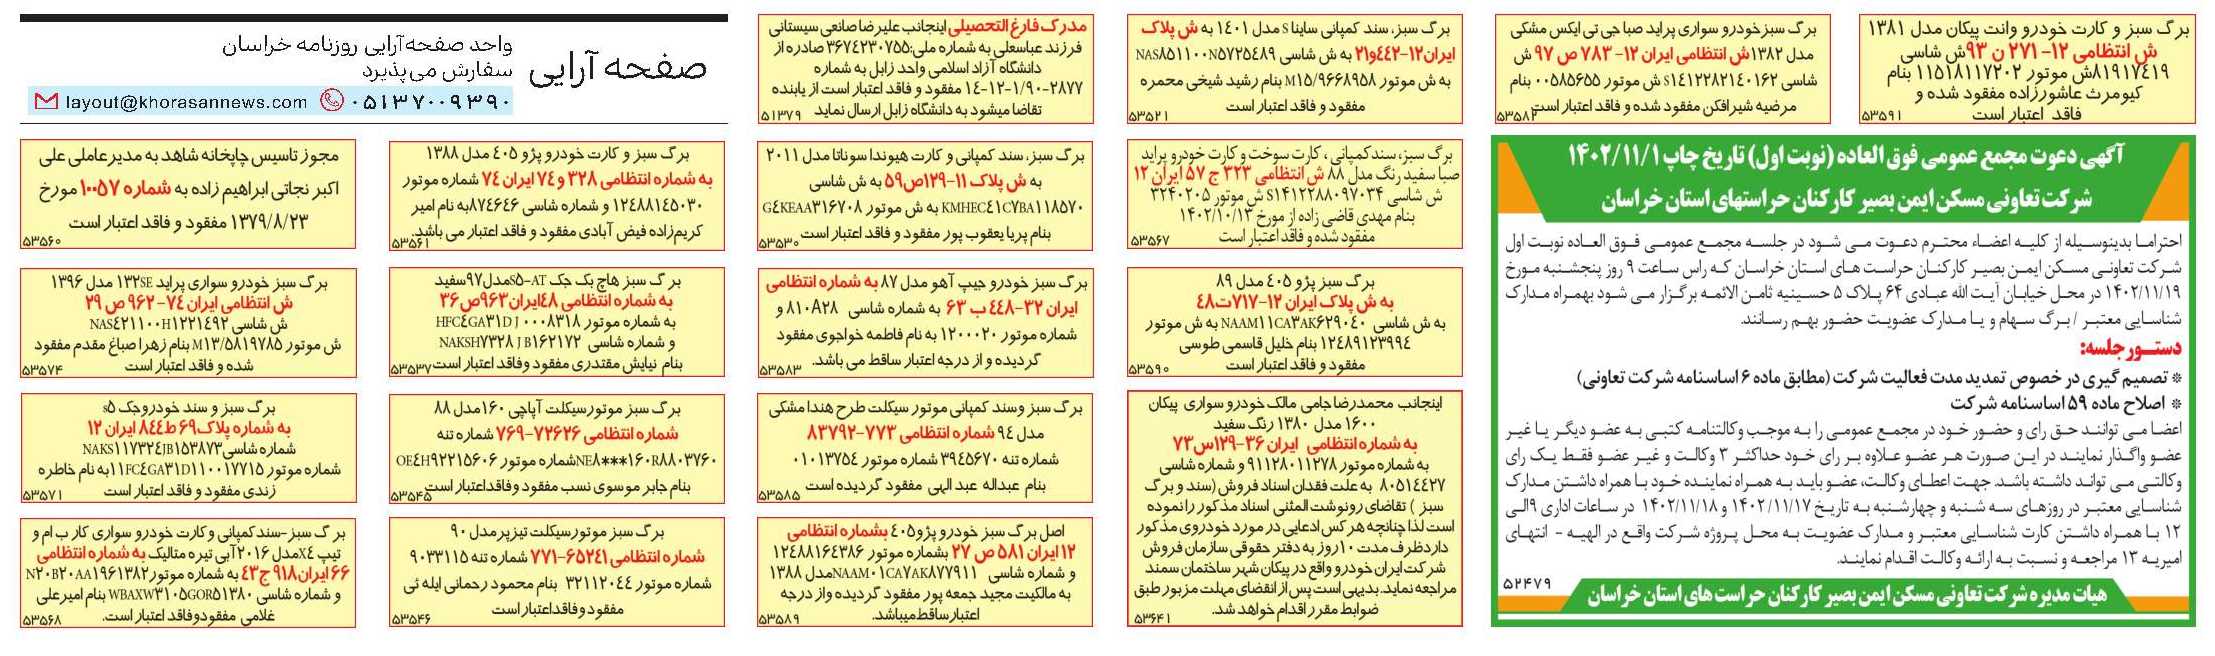 برگ سبز و کارت خودرو وانت پیکان مدل ۱۳۸۱
ش انتظامی ۱۲- ۲۷۱ ن ۹۳ش شاسی
۸۱۹۱۷۴۱۹ش موتور ۱۱۵۱۸۱۱۷۲۰۲ بنام
کیومرث عاشورزاده مفقود شده و
فاقد اعتبار است
۵۳۵۹۱
برگ سبزخودرو سواری پراید صبا جی تی ایکس مشکی
مدل ۱۳۸۲ش انتظامی ایران ۱۲- ۷۸۳ ص ۹۷ ش
شاسی S۱۴۱۲۲۸۲۱۴۰۱۶۲ ش موتور ۰۰۵۸۵۶۵۵ بنام
مرضیه شیرافکن مفقود شده و فاقد اعتبار است
۵۳۵۸۲
آگهی دعوت مجمع عمومی فوق العاده (نوبت اول) تاریخ چاپ ۱۴۰۲/۱۱/۱
شرکت تعاونی مسکن ایمن بصیر کارکنان حراستهای استان خراسان
احتراما بدینوسیله از کلیه اعضاء محترم دعوت می شود در جلسه مجمع عمومی فوق العاده نوبت اول
شرکت تعاونی مسکن ایمن بصیر کارکنان حراست های استان خراسان که راس ساعت ۹ روز پنجشنبه مورخ
۱۴۰۲/۱۱/۱۹ در محل خیابان آیت الله عبادی ۶۴ پلاک ۵ حسینیه ثامن الائمه برگزار می شود بهمراه مدارک
شناسایی معتبر / برگ سهام و یا مدارک عضویت حضور بهم رسانند.
دستور جلسه:
* تصمیم گیری در خصوص تمدید مدت فعالیت شرکت (مطابق ماده ۶ اساسنامه شرکت تعاونی)
* اصلاح ماده ۵۹ اساسنامه شرکت
اعضا می توانند حق رای و حضور خود در مجمع عمومی را به موجب وکالتنامه کتبی به عضو دیگر یا غیر
عضو واگذار نمایند در این صورت هر عضو علاوه بر رای خود حداکثر ۳ وکالت و غیر عضو فقط یک رای
وکالتی می تواند داشته باشد. جهت اعطای وکالت، عضو باید به همراه نماینده خود با همراه داشتن مدارک
شناسایی معتبر در روزهای سه شنبه و چهارشنبه به تاریخ ۱۴۰۲/۱۱/۱۷ و ۱۴۰۲/۱۱/۱۸ در ساعات اداری ۹الی
۱۲ با همراه داشتن کارت شناسایی معتبر و مدارک عضویت به محل پروژه شرکت واقع در الهیه - انتهای
امیریه ۱۳ مراجعه و نسبت به ارائه وکالت اقدام نمایند.
۵۲۴۷۹
هیات مدیره شرکت تعاونی مسکن ایمن بصیر کارکنان حراست های استان خراسان
برگ سبز، سند کمپانی ساینا S مدل ۱۴۰۱ به ش پلاک
ایران۱۲-۴۴۲و۲۱ به ش شاسی NAS۸۵۱۱۰۰N۵۷۲۵۴۸۹
به ش موتور M۱۵/۹۶۶۸۹۵۸ بنام رشید شیخی محمره
مفقود و فاقد اعتبار است
۵۳۵۲۱
برگ سبز، سندکمپانی ، کارت سوخت و کارت خودرو پراید
صبا سفید رنگ مدل ۸۸ ش انتظامی ۳۲۳ ج ۵۷ ایران ۱۲
ش شاسی S۱۴۱۲۲۸۸۰۹۷۰۳۴ ش موتور ۳۲۴۰۲۰۵
بنام مهدی قاضی زاده از مورخ ۱۴۰۲/۱۰/۱۳
مفقود شده و فاقد اعتبار است
۵۳۵۶۷
برگ سبز پژو ۴۰۵ مدل ۸۹
به ش پلاک ایران ۱۲-۷۱۷ت۴۸
به ش شاسی NAAM۱۱CA۳AK۶۲۹۰۴۰ به ش موتور
۱۲۴۸۹۱۲۳۹۹۴ بنام خلیل قاسمی طوسی
مفقود و فاقد اعتبار است
۵۳۵۹۰
اینجانب محمدرضا جامی مالک خودرو سواری پیکان
۱۶۰۰ مدل ۱۳۸۰ رنگ سفید
به شماره انتظامی ایران ۳۶-۱۲۹س۷۳
به شماره موتور ۹۱۱۲۸۰۱۱۲۷۸ و شماره شاسی
۸۰۵۱۴۴۲۷ به علت فقدان اسناد فروش (سند و برگ
سبز ) تقاضای رونوشت المثنی اسناد مذکور را نموده
است لذا چنانچه هرکس ادعایی در مورد خودروی مذکور
دارد ظرف مدت ۱۰ روز به دفتر حقوقی سازمان فروش
شرکت ایران خودرو واقع در پیکان شهر ساختمان سمند
مراجعه نماید. بدیهی است پس از انقضای مهلت مزبور طبق
ضوابط مقرر اقدام خواهد شد.
۵۳۶۴۱
مدرک فارغ التحصیلی اینجانب علیرضا صانعی سیستانی
فرزند عباسعلی به شماره ملی:۳۶۷۴۲۳۰۷۵۵ صادره از
دانشگاه آزاد اسلامی واحد زابل به شماره
۱۴-۱۲-۱/۹۰-۲۸۷۷ مفقود و فاقد اعتبار است از یابنده
تقاضا میشود به دانشگاه زابل ارسال نماید
۵۱۳۷۹
برگ سبز، سند کمپانی و کارت هیوندا سوناتا مدل ۲۰۱۱
به ش پلاک ۱۱-۱۲۹ص۵۹ به ش شاسی
KMHEC۴۱C۷BA۱۱۸۵۷۰ به ش موتور G۴KEAA۳۱۶۷۰۸
بنام پریا یعقوب پور مفقود و فاقد اعتبار است
۵۳۵۳۰
برگ سبز خودرو جیپ آهو مدل ۸۷ به شماره انتظامی
ایران ۳۲-۴۴۸ ب ۶۳ به شماره شاسی ۸۱۰A۲۸ و
شماره موتور ۱۲۰۰۰۲۰ به نام فاطمه خواجوی مفقود
گردیده و از درجه اعتبار ساقط می باشد.
۵۳۵۸۳
برگ سبز وسند کمپانی موتور سیکلت طرح هندا مشکی
مدل ۹۴ شماره انتظامی ۷۷۳-۸۳۷۹۲
شماره تنه ۳۹۴۵۶۷۰ شماره موتور ۰۱۰۱۳۷۵۴
بنام عبداله عبد الهی مفقود گردیده است
۵۳۵۸۵
اصل برگ سبز خودرو پژو۴۰۵ بشماره انتظامی
۱۲ ایران ۵۸۱ ص ۲۷ بشماره موتور ۱۲۴۸۸۱۶۴۳۸۶
و شماره شاسی NAAM۰۱CA۷AK۸۷۷۹۱۱مدل ۱۳۸۸
به مالکیت مجید جمعه پور مفقود گردیده واز درجه
اعتبارساقط میباشد.
۵۳۵۸۹
صفحه آرایی
واحد صفحه آرایی روزنامه خراسان
سفارش می پذیرد
۰۵۱۳۷۰۰۹۳۹۰ layout@khorasannews.com
برگ سبز و کارت خودرو پژو ۴۰۵ مدل ۱۳۸۸
به شماره انتظامی ۳۲۸ و ۷۴ ایران ۷۴ شماره موتور
۱۲۴۸۸۱۴۵۰۳۰ و شماره شاسی ۸۷۴۶۴۶به نام امیر
کریم زاده فیض آبادی مفقود و فاقد اعتبار می باشد.
۵۳۵۶۱
برگ سبز هاچ بک جک S۵-ATمدل۹۷سفید
به شماره انتظامی ۴۸ایران۹۶۳ص۳۶
به شماره موتور HFC۴GA۳۱DJ۰۰۰۸۳۱۸
و شماره شاسی NAKSH۷۳۲۸JB۱۶۲۱۷۲
بنام نیایش مقتدری مفقود وفاقد اعتبار است
۵۳۵۳۷
برگ سبز موتورسیکلت آپاچی ۱۶۰مدل ۸۸
شماره انتظامی ۷۲۶۲۶-۷۶۹ شماره تنه
NE۸***۱۶۰R۸۸۰۳۷۶۰شماره موتور OE۴H۹۲۲۱۵۶۰۶
بنام جابر موسوی نسب مفقود و فاقداعتبار است
۵۳۵۴۵
برگ سبز موتورسیکلت تیزپرمدل ۹۰
شماره انتظامی۶۵۲۴۱-۷۷۱ شماره تنه ۹۰۳۳۱۱۵
شماره موتور ۳۲۱۱۲۰۴۴ بنام محمود رحمانی ایله ئی
مفقود وفاقد اعتبار است
۵۳۵۴۶
مجوز تاسیس چاپخانه شاهد به مدیرعاملی علی
اکبر نجاتی ابراهیم زاده به شماره ۱۰۰۵۷ مورخ
۱۳۷۹/۸/۲۳ مفقود و فاقد اعتبار است
۵۳۵۶۰
برگ سبز خودرو سواری پراید ۱۳۲SE مدل ۱۳۹۶
ش انتظامی ایران ۷۴- ۹۶۲ ص ۲۹
ش شاسی NAS۴۲۱۱۰۰H۱۲۲۱۴۹۲
ش موتور M۱۳/۵۸۱۹۷۸۵ بنام زهرا صباغ مقدم مفقود
شده و فاقد اعتبار است
۵۳۵۷۴
برگ سبز و سند خودروجک S۵
به شماره پلاک۶۹ط۸۴۴ ایران ۱۲
شماره شاسی NAKS۱۱۷۳۲۴JB۱۵۳۸۷۳
شماره موتور ۱۱FC۴GA۳۱D۱۱۰۰۱۷۷۱۵به نام خاطره
زندی مفقود و فاقد اعتبار است
۵۳۵۷۱
برگ سبز-سندکمپانی وکارت خودرو سواری کار ب ام و
تیپ X۴مدل ۲۰۱۶آبی تیره متالیک به شماره انتظامی
۶۶ ایران۹۱۸ ج۴۳ به شماره موتور N۲۰B۲۰AA۱۹۶۱۳۸۲
و شماره شاسی WBAXW۳۱۰۵GOR۵۱۳۸۰ بنام امیرعلی
غلامی مفقودو فاقد اعتبار است.
۵۳۵۶۸